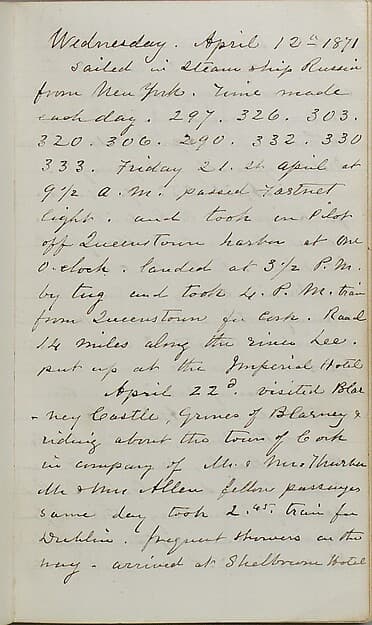 Wednesday. April 12th 1871
Sailed in Steam ship Russia
from New York. Time made
each day. 297. 326. 303.
320. 306. 290. 332. 330
333. Friday 21. st April at
9 1/2 A.M. passed Fastnet
light. and took on Pilot
off Queenstown harbor at one
O-clock. landed at 3 1/2 P.M.
by tug and took 4. P.M. train
from Queenstown for Cork. Road
14 miles along the river Lee.
put up at the Imperial Hotel
April 22d. visited Blar
-ney Castle, Groves of Blarney &
riding about the town of Cork
in company of Mr. & Mrs Thurber
Mr & Mrs Allen fellow passengers
same day took 2.45. train for
Dublin. frequent showers on the
way - arrived at Shelbourne Hotel